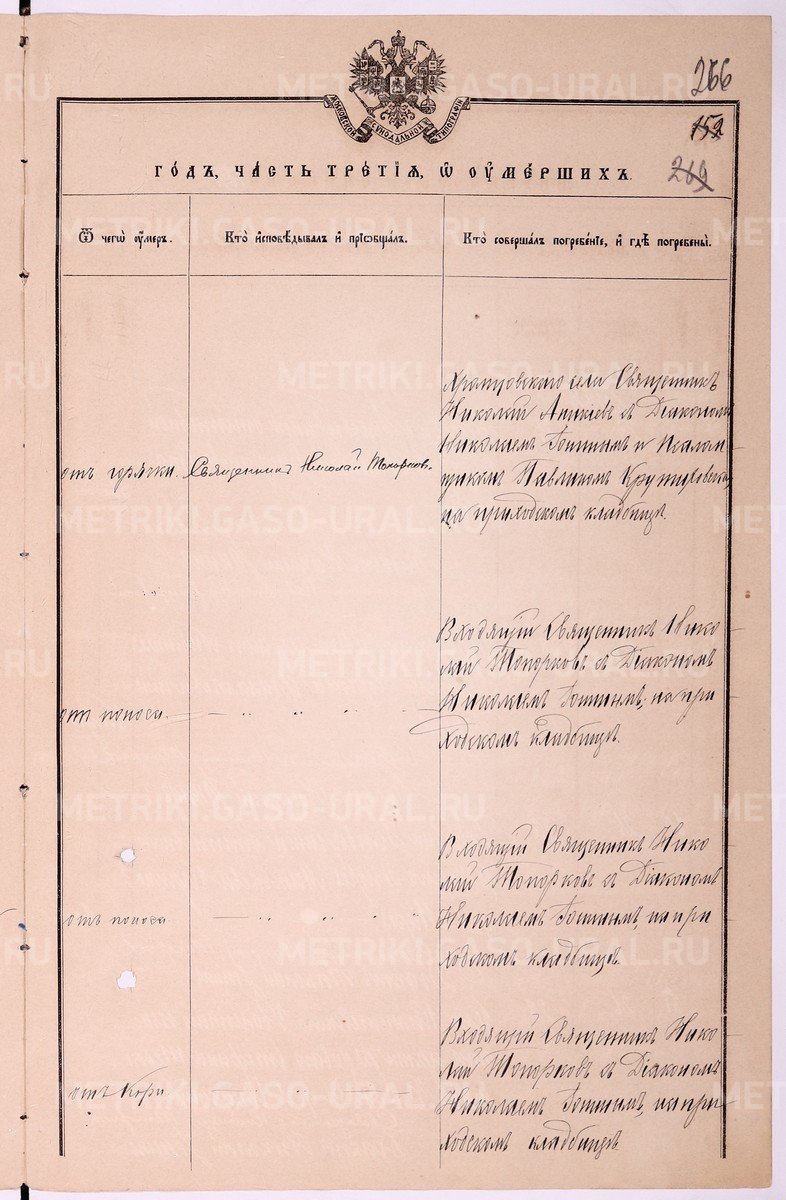 266
152
269
МОСКОВСКОЙ СѴНОДАЛЬНОЙ ТИПОГРАФІИ
ГО́ДЪ, ЧА́СТЬ ТРЕ́ТІѦ, Ѡ҆ ОУ҆МЕ́РШИХЪ.
Ѿ чегѡ̀ оу҆́меръ.
Кто̀ и҆сповѣ́дывалъ и҆ прїѡбща́лъ.
Кто̀ соверша́лъ погребе́нїе, и҆ гдѣ̀ погребены̀.
отъ горячки.
Священникъ Николай Топорков.
села Священникъ
Николай Аникіевъ съ Діакономъ
Николаемъ и Псалом
щикомъ Павлиномъ
на приходскомъ кладбищѣ.
отъ поноса
Входящій Священникъ Нико
лай Топорковъ съ Діакономъ
Николаемъ на при
ходскомъ кладбищѣ.
отъ поноса
Входящій Священникъ Нико
лай Топорковъ съ Діакономъ
Николаемъ на при
ходскомъ кладбищѣ
отъ Кори
Входящій Священникъ Нико
лай Топорковъ съ Діакономъ
Николаемъ на при
ходскомъ кладбищѣ
METRIKI.GASO-URAL.RU